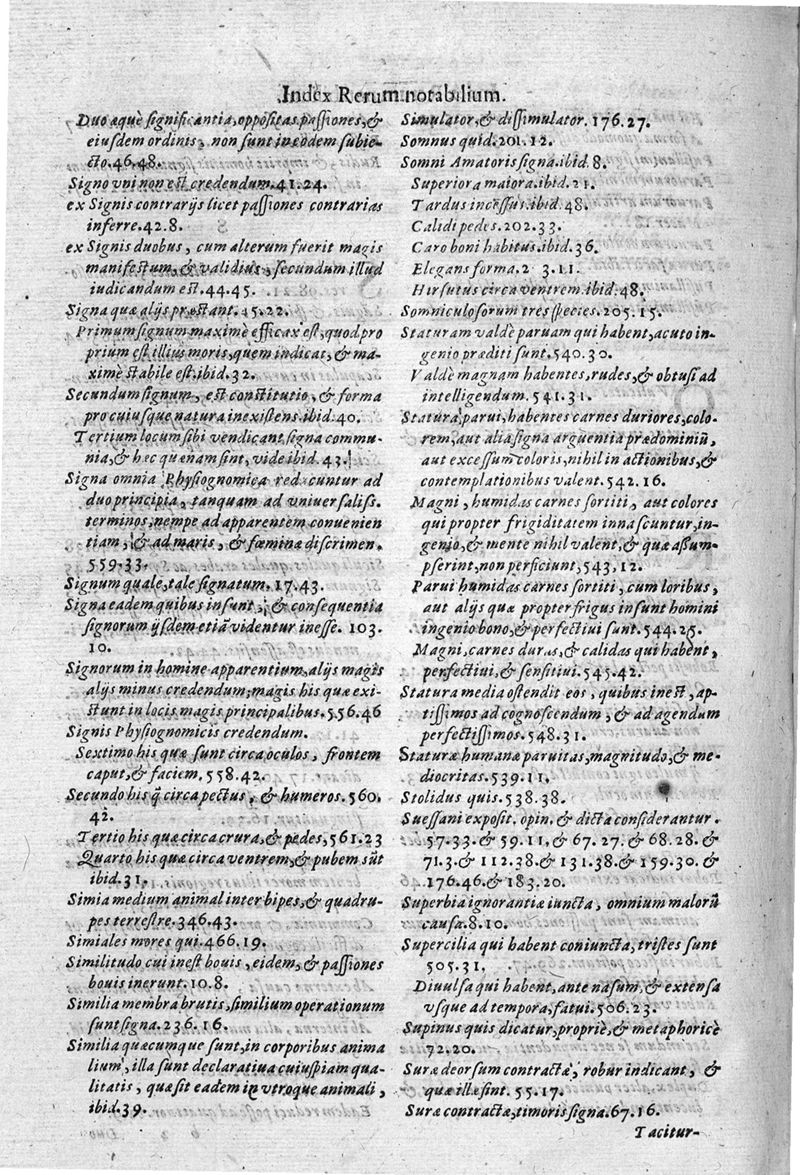 Index Rerum notabilium.
Duo æquè significantia, oppositas passiones, &
eiusdem ordinis, non sunt in eodem subie-
cto. 46. 48.
Signo vni non est credendum. 41. 24.
ex Signis contrarijs licet passiones contrarias
inferre. 42. 8.
ex Signis duobus, cum alterum fuerit magis
manifestum, & validius, secundum illud
iudicandum est. 44. 45.
Signa quæ alijs præstant. 45. 22.
Primum signum maximè efficax est, quod pro
prium est illius moris, quem indicat, & ma-
ximè stabile est. ibid. 32.
Secundum signum, est constitutio, & forma
pro cuiusque natura inexistens. ibid. 40.
Tertium locum sibi vendicant signa commu-
nia, & hæc quænam sint, vide ibid. 43.
Signa omnia Physiognomica reducuntur ad
duo principia, tanquam ad vniuersaliss.
terminos, nempe ad apparentem conuenien
tiam, & ad maris, & fœminæ discrimen.
559. 33.
Signum quale, tale signatum. 17. 43.
Signa eadem quibus insunt, & consequentia
signorum ijsdem etiā videntur inesse. 103.
10.
Signorum in homine apparentium, alijs magis
alijs minus credendum; magis his quæ exi-
stunt in locis magis principalibus. 556. 46
Signis Physiognomicis credendum.
Sextimo his quæ sunt circa oculos, frontem
caput, & faciem. 558. 42.
Secundo his q̃ circa pectus, & humeros. 560.
42.
Tertio his quæ circa crura, & pedes, 561. 23
Quarto his quæ circa ventrem, & pubem sūt
ibid. 31.
Simia medium animal inter bipes, & quadru-
pes terrestre. 346. 43.
Simiales mores qui. 466. 19.
Similitudo cui inest bouis, eidem, & passiones
bouis inerunt. 10. 8.
Similia membra brutis, similium operationum
sunt signa. 236. 16.
Similia quæcumque sunt, in corporibus anima
lium, illa sunt declaratiua cuiuspiam qua-
litatis, quæ sit eadem in vtroque animali,
ibid. 39.
Simulator, & dissimulator. 176. 27.
Somnus quid. 201. 12.
Somni Amatoris signa. ibid 8.
Superiora maiora. ibid. 21.
Tardus incessus. ibid. 48.
Calidi pedes. 202. 33.
Caro boni habitus. ibid. 36.
Elegans forma. 2 3. 11.
Hirsutus circa ventrem. ibid. 48.
Somniculosorum tres species. 205. 15.
Staturam valdè paruam qui habent, acuto in-
genio præditi sunt. 540. 30.
Valdè magnam habentes, rudes, & obtusi ad
intelligendum. 541. 31.
Statura parui, habentes carnes duriores, colo-
rem, aut alia signa arguentia prædominiū,
aut excessum coloris, nihil in actionibus, &
contemplationibus valent. 542. 16.
Magni, humidas carnes sortiti, aut colores
qui propter frigiditatem innascuntur, in-
genio, & mente nihil valent, & quæ assum-
pserint, non perficiunt, 543. 12.
Parui humidas carnes sortiti, cum loribus,
aut alijs quæ propter frigus insunt homini
ingenio bono, & perfectiui sunt. 544. 25.
Magni, carnes duras, & calidas qui habent,
perfectiui, & sensitiui. 545. 42.
Statura media ostendit eos, quibus inest, ap-
tissimos ad cognoscendum, & ad agendum
perfectissimos. 548. 31.
Staturæ humanæ paruitas, magnitudo, & me-
diocritas. 539. 11.
Stolidus quis. 538. 38.
Suessani exposit. opin. & dicta considerantur.
57. 33. & 59. 11. & 67. 27. & 68. 28. &
71. 3. & 112. 38. & 131. 38. & 159. 30. &
176. 46. & 183. 20.
Superbia ignorantiæ iuncta, omnium malorū
causa. 8. 10.
Supercilia qui habent coniuncta, tristes sunt
505. 31.
Diuulsa qui habent, ante nasum, & extensa
vsque ad tempora, fatui. 506. 23.
Supinus quis dicatur, propriè, & metaphoricè
72. 20.
Suræ deorsum contractæ, robur indicant, &
quæ illæ sint. 55. 17.
Suræ contractæ, timoris signa. 67. 16.
Tacitur-